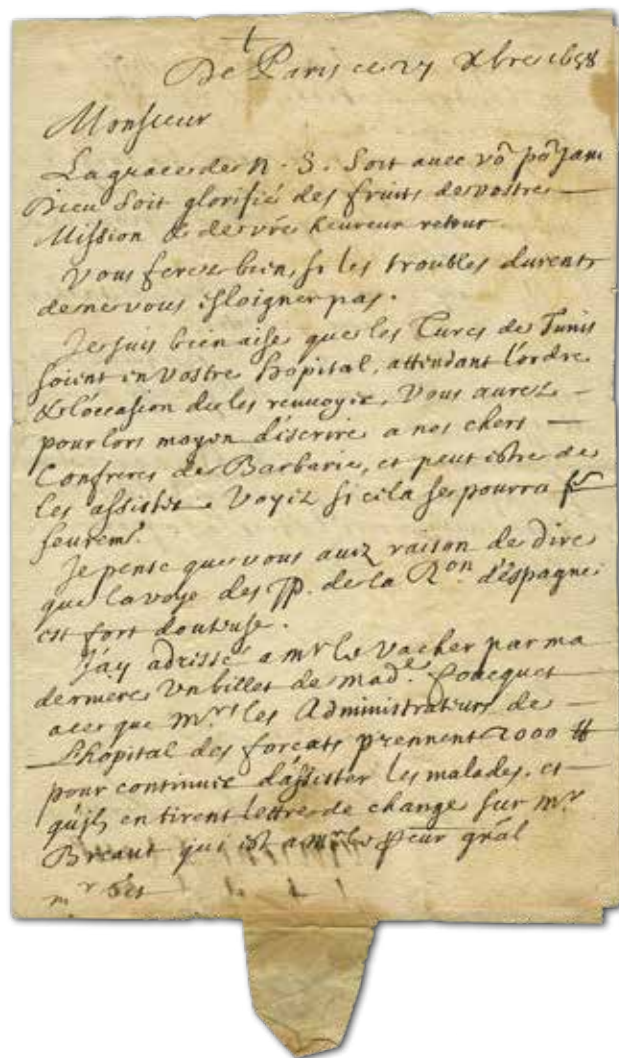 †
De Paris ce 27 Xbre 1658
Monsieur
La grace de N. S. soit auec võ põ jam
Dieu soit glorifié des fruits de vostre —
Mission & de vre heureux retour.
Vous ferez bien, si les troubles durent
de ne vous esloigner pas.
Je suis bien aise que les Turcs de Tunis
soient en vostre hopital, attendant l'ordre
& l'occasion de les renuoyer. Vous aurez —
pour lors moyen d'escrire a nos chers —
Confreres de Barbarie, et peut estre de
les assister. Voyez si cela se pourra
seuremt.
Je pense que vous auez raison de dire
que la voye des PP. de la Ron. d'espagne
est fort douteuse.
J'ay adressé a mr le Vacher par ma
derniere Vn billet de made. foucquet
a ce que Mrs les Administrateurs de —
L'hopital des forcats prennent 2000 ₶
pour continuer d'assister les malades. et —
qu'ils en tirent lettre de change sur mr.
qui est a mr le gñal
mr